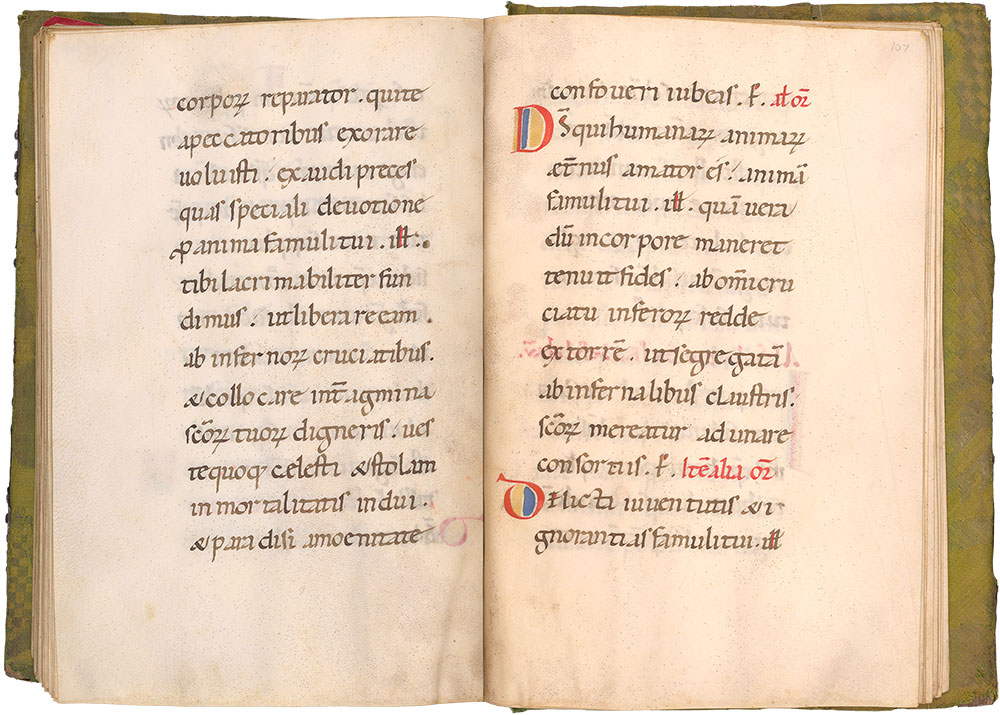 corporꝝ reparator. quite
apeccatoribus exorare
uoluisti. exaudi preces
quas speciali deuotione
ꝓ anima famuli tui. ill.
tibi lacrimabiliter fun
dimus. ut liberare eam.
ab infernorꝝ cruciatibus.
& collocare int̄ agmina
sc̄orꝝ tuorꝝ digneris. ues
te quoq; celesti & stolam
inmortalitatis indui.
& paradisi amoenitate
107
confoueri iubeas. P̱. al̄ or̄
Ds̄ qui humanarꝝ animarꝝ
æt̄nus amator es. animā
famuli tui. ill. quā uera
dū in corpore maneret
tenuit fides. ab om̄i cru
ciatu inferorꝝ redde
extorrē. ut segregatā
ab infernalibus claustris.
sc̄orꝝ mereatur adunare
consortiis. P̱. Itē alia or̄
Delicti iuuentutis & i
gnorantias famuli tui. ill